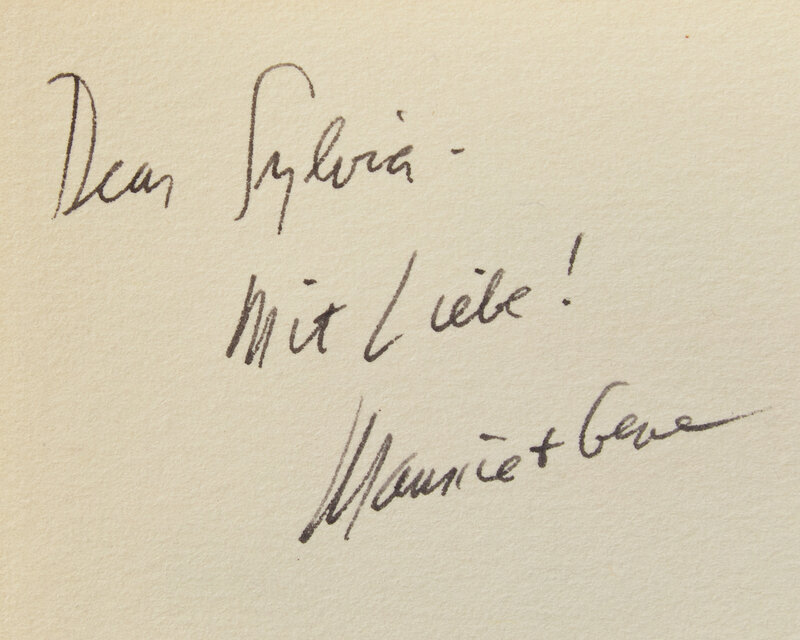 Dear Sylvia -
Mit Liebe!
Maurice + Gene